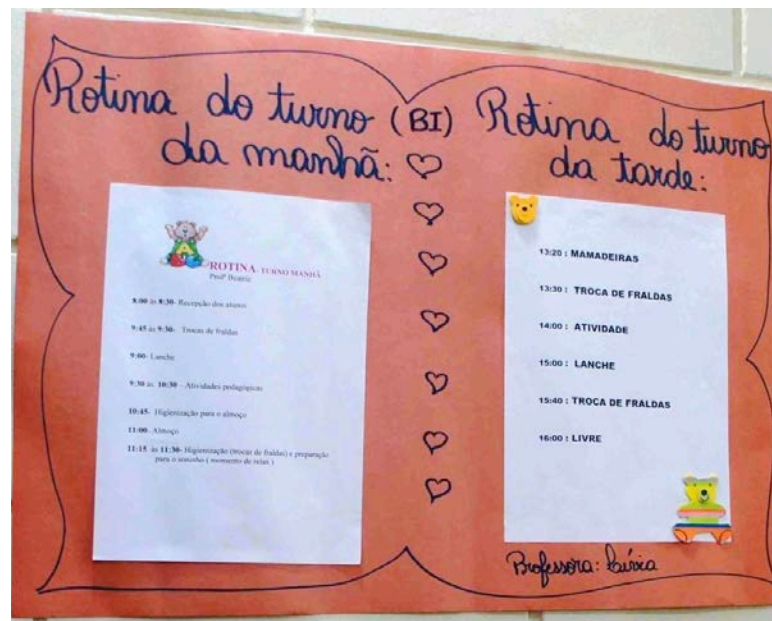 Rotina do turno
da manhã:
(BI)
ROTINA- TURNO MANHÃ
Profª Beatriz
8:00 às 8:30- Recepção dos alunos
9:45 às 9:30- Trocas de fraldas
9:00- Lanche
9:30 às 10:30 - Atividades pedagógicas
10:45- Higienização para o almoço
11:00- Almoço
11:15 às 11:30- Higienização (trocas de fraldas) e preparação
para o soninho ( momento de relax )
Rotina do turno
da tarde:
13:20 : MAMADEIRAS
13:30 : TROCA DE FRALDAS
14:00 : ATIVIDADE
15:00 : LANCHE
15:40 : TROCA DE FRALDAS
16:00 : LIVRE
Professora: